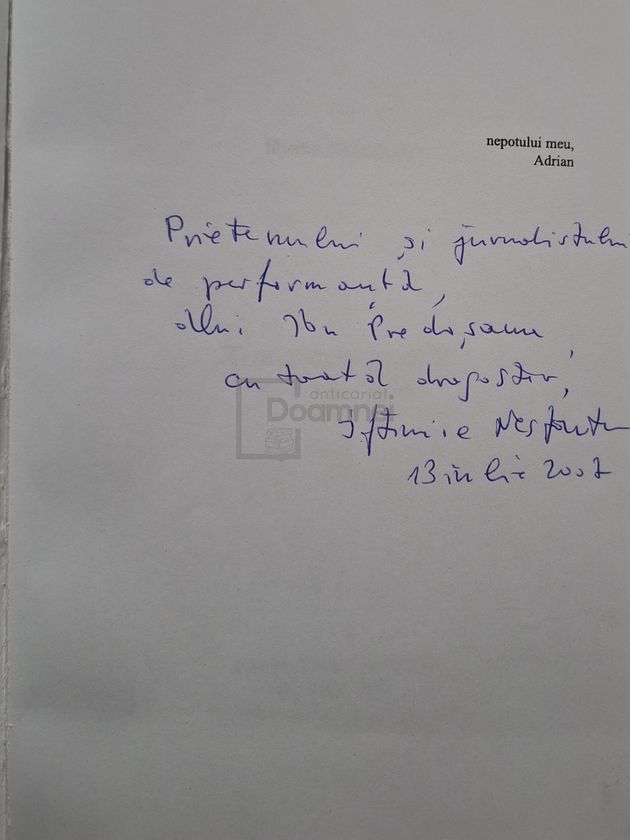 nepotului meu,
Adrian
Prietenului și jurnalistului
de performanță,
dlui Ion Predoșanu,
cu toată dragostea,
Iftimie Nesfântu
13 iulie 2007
anticariat
Doamnei